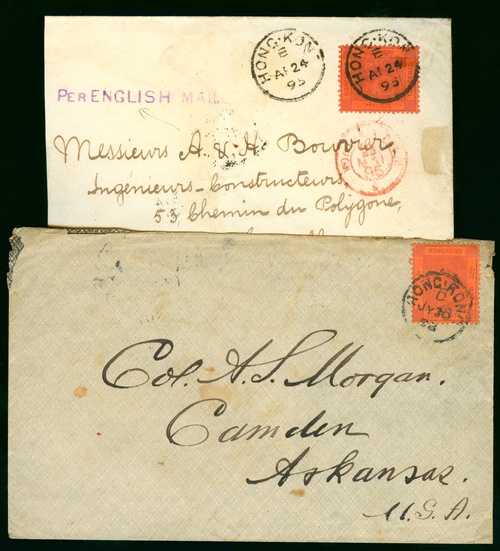 HONG·KON
E
AP 24
95
HONG·KON
E
AP 24
95
PER ENGLISH MAIL
Messieurs A & H Bouvier
Ingénieurs-Constructeurs,
53, Chemin du Polygone,
HONGKONG
HONG·KONG
D
JY
Col. A. S. Morgan.
Camden
Arkansas.
U.S.A.